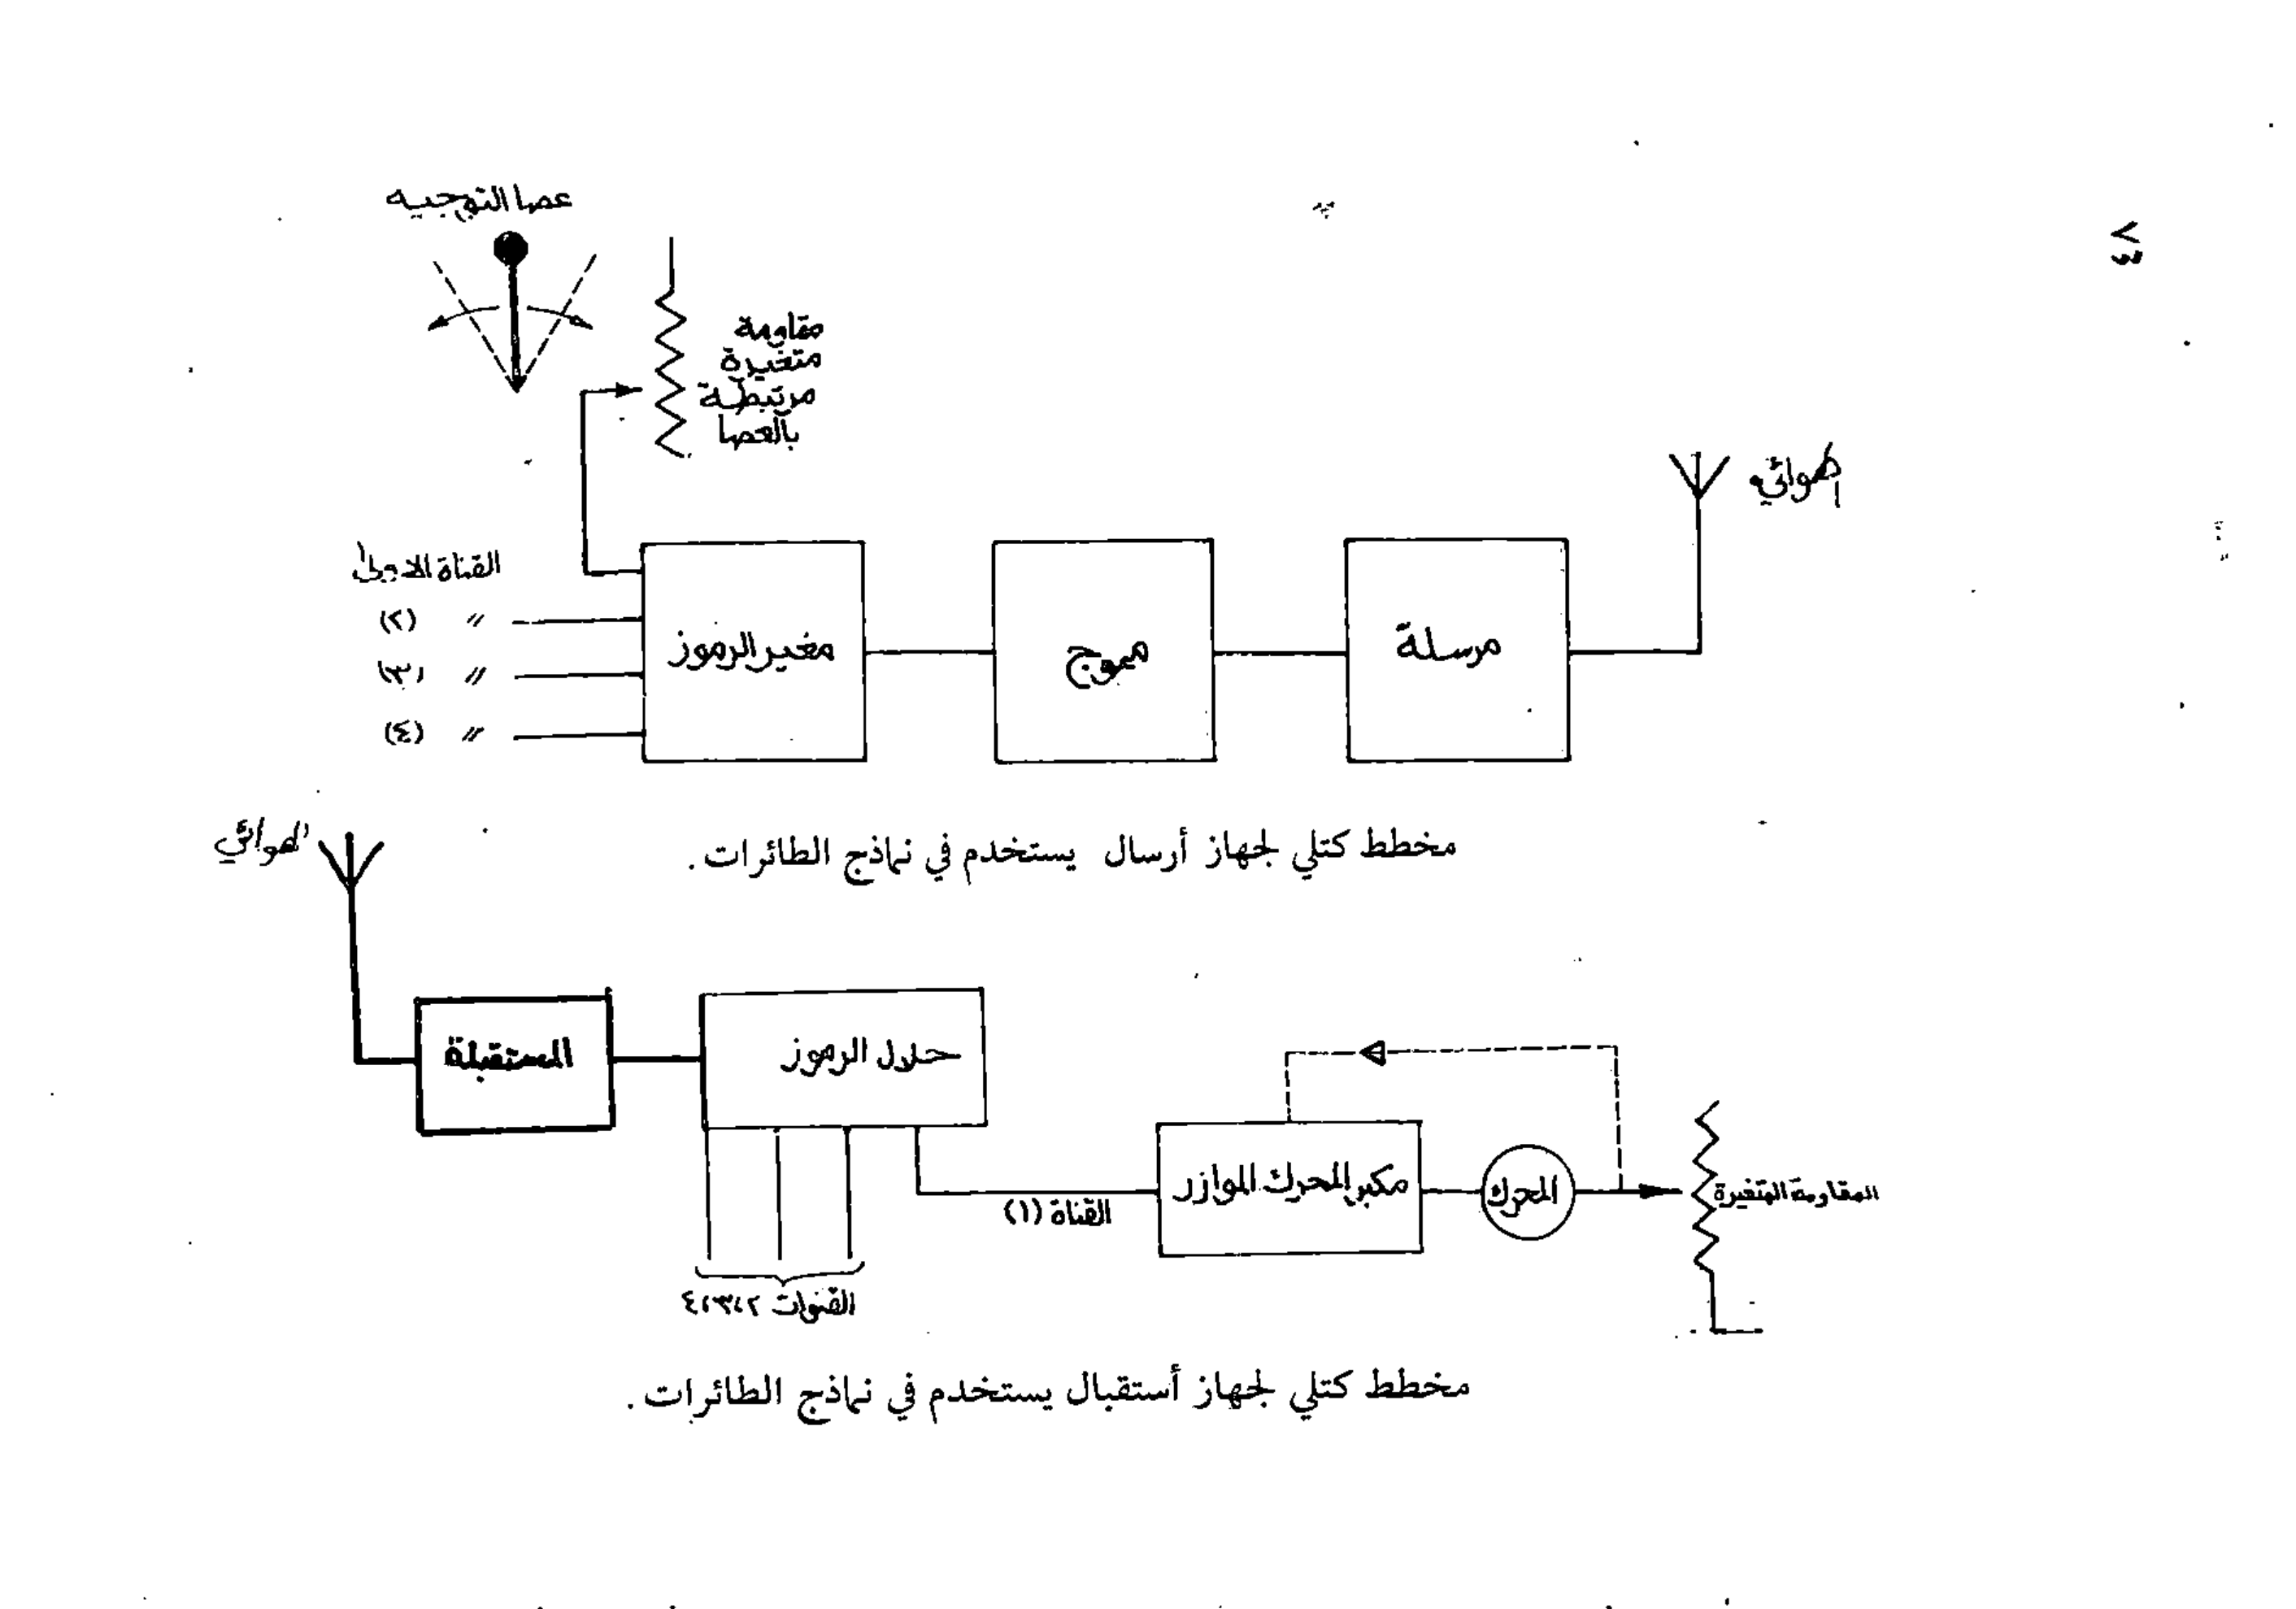 عصا التوجيه
مقاومة
متغيرة
مرتبطة
بالعصا
الهوائي
القناة الاولى
〃 (٢)
〃 (٣)
〃 (٤)
مغير الرموز
مموج
مرسلة
مخطط كتلي لجهاز أرسال يستخدم في نماذج الطائرات.
الهوائي
المستقبلة
حلال الرموز
مكبر المحرك الموازر
المحرك
المقاومة المتغيرة
القناة (١)
القنوات ٤،٣،٢
مخطط كتلي لجهاز أستقبال يستخدم في نماذج الطائرات.